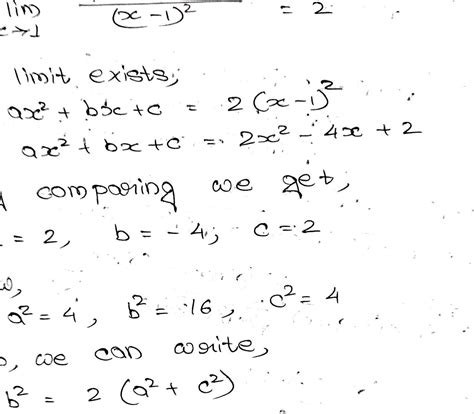 lim
x→1 (x-1)² = 2
limit exists,
ax² + bx + c = 2(x-1)²
ax² + bx + c = 2x² - 4x + 2
comparing we get,
= 2, b = -4, c = 2
a² = 4, b² = 16, c² = 4
we can write,
b² = 2 (a² + c²)